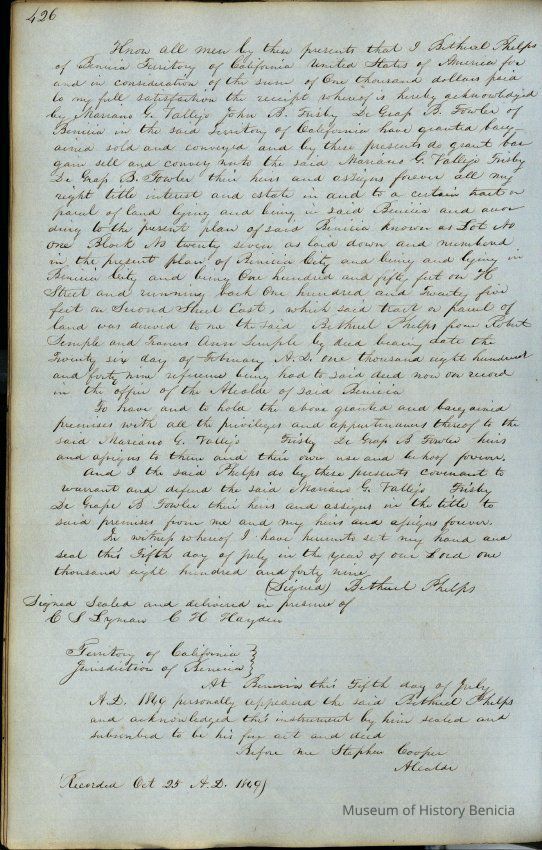 426
Know all men by these presents that I Bethuel Phelps
of Benicia Territory of California United States of America for
and in consideration of the sum of One thousand dollars paid
to my full satisfaction the receipt whereof is hereby acknowledged
by Mariano G. Vallejo John B. Frisby De Grap B. Fowler of
Benicia in the said Territory of California have granted barg-
ained sold and conveyed and by these presents do grant bar
gain sell and convey unto the said Mariano G. Vallejo Frisby
De Grap B. Fowler their heirs and assigns forever all my
right title interest and estate in and to a certain tract or
parcel of land lying and being in said Benicia and accor
ding to the present plan of said Benicia known as Lot No
one Block No twenty seven as laid down and numbered
in the present plan of Benicia City and being and lying in
Benicia City and being One hundred and fifty feet on H
Street and running back One hundred and Twenty five
feet on Second Street East, which said tract or parcel of
land was deeded to me the said Bethuel Phelps from Robert
Semple and Frances Ann Semple by deed bearing date the
Twenty six day of February A.D. one thousand eight hundred
and forty nine reference being had to said deed now on record
in the office of the Alcalde of said Benicia
To have and to hold the above granted and bargained
premises with all the privileges and appurtenances thereof to the
said Mariano G. Vallejo Frisby De Grap B Fowler heirs
and assigns to them and their own use and behoof forever.
And I the said Phelps do by these presents covenant to
warrant and defend the said Mariano G. Vallejo Frisby
De Grape B Fowler their heirs and assigns in the title to
said premises from me and my heirs and assigns forever.
In witness whereof I have hereunto set my hand and
seal this Fifth day of July in the year of our Lord one
thousand eight hundred and forty nine
(Signed) Bethuel Phelps
Signed Sealed and delivered in presence of
C S Lyman C H Hayden
Territory of California }
Jurisdiction of Benicia }
At Benicia this Fifth day of July
A.D. 1849 personally appeared the said Bethuel Phelps
and acknowledged this instrument by him sealed and
subscribed to be his free act and deed
Before me Stephen Cooper
Alcalde
(Recorded Oct 25 A.D. 1849)
Museum of History Benicia